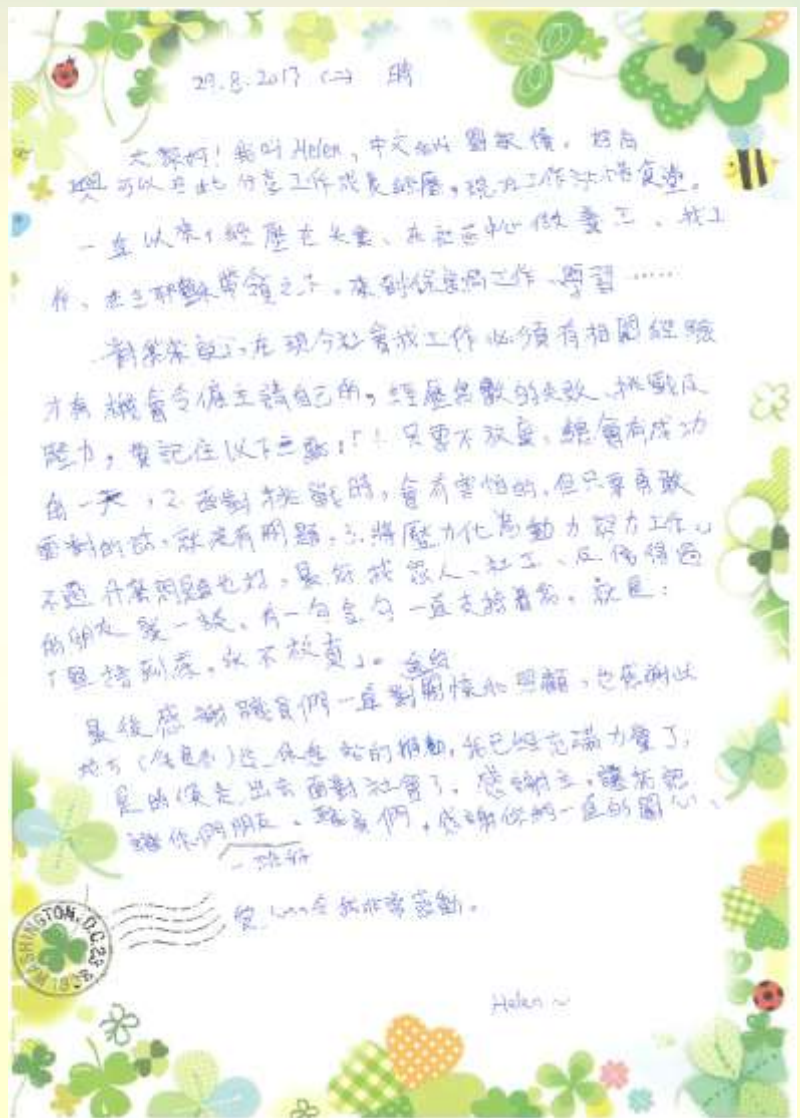 29.8.2017 (二) 晴
大家好！我叫 Helen，中文名叫劉敏儀。好高
興可以在此分享工作成長經歷，現於工作
一直以來，經歷在失業、在社區中心做義工、找工
作、在主耶穌帶領之下，來到 工作、學習……
對 在現今社會找工作必須有相關經驗
才有機會令僱主請自己的，經歷無數的失敗、挑戰及
壓力，要記住以下三點：「1. 只要不放棄，總會有成功
的一天，2. 面對挑戰時，會有害怕的，但只要勇敢
面對的話，就沒有問題，3. 將壓力化為動力努力工作。」
不過什麼問題也好，最好找家人、社工、及信得過
的朋友 一談。有一句金句一直支持着我，就是：
「堅持到底，永不放棄」。
最後感謝職員們一直對 關懷和照顧，也感謝此
地方 的 動，我已經充滿力量了，
是時候走出去面對社會了。感謝主，讓我認
識你們朋友。職員們，感謝你們一直的關心、
一路好
愛 令我非常感動。
WASHINGTON, D.C. 23
Helen ~